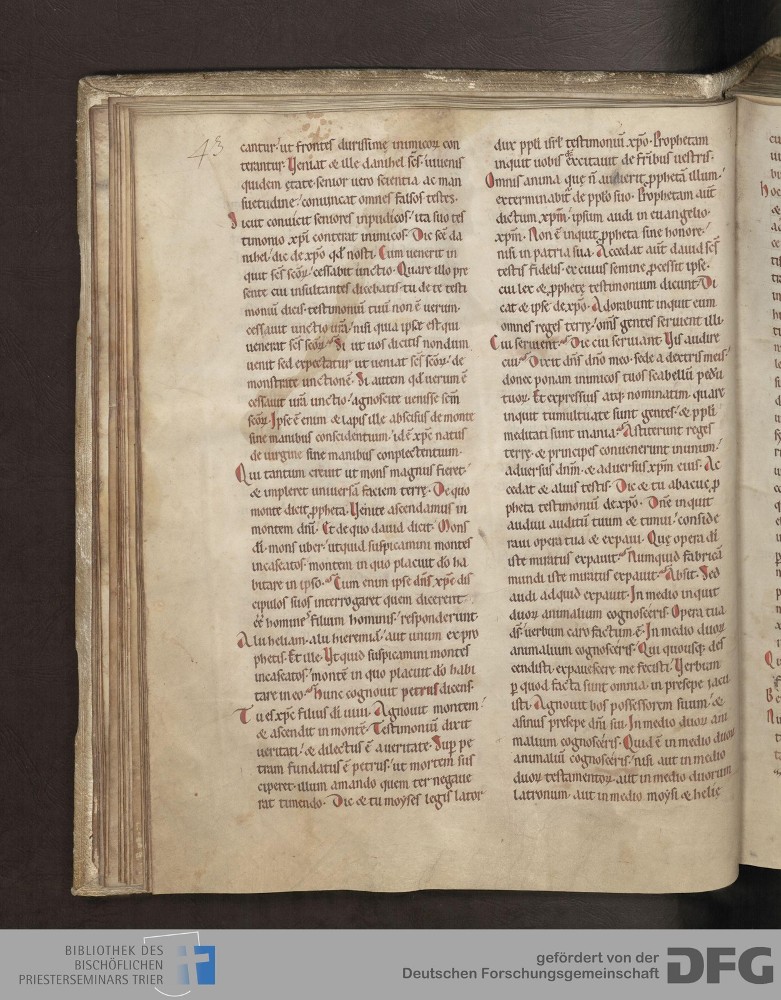 43
cantur· ut frontes durissimę inimicoꝝ con
terantur· Ueniat & ille danihel scs̄· iuuenis
quidem ętate· senior uero scientia ac man
suetudine· conuincat omnes falsos testes·
Sicut conuicit seniores inpudicos· ita suo tes
timonio xp̄i conterat inimicos· Dic scē da
nihel· dic de xp̄o qd̄ nosti· Cum uenerit in
quit scs̄ scōꝝ· cessabit unctio· Quare illo pre
sente cui insultantes dicebatis· tu de te testi
moniū dicis· testimoniū tuū non ē uerum·
cessauit unctio ur̄a· nisi quia ipse est qui
uenerat scs̄ scōꝝ· Si ut uos dicitis nondum
uenit sed expectatur ut ueniat scs̄ scōꝝ· de
monstrate unctionē· Si autem qd̄ uerum ē
cessauit ur̄a unctio· agnoscite uenisse scm̄
scōꝝ· Ipse ē enim & lapis ille abscisus de monte
sine manibus concidentium· id ē xp̄c natus
de uirgine sine manibus complectentium·
Qui tantum creuit ut mons magnus fieret·
& impleret uniuersā faciem terrę· De quo
monte dicit ꝓpheta· Uenite ascendamus in
montem dn̄i· Et de quo dauid dicit· Mons
dī mons uber· utquid suspicamini montes
incaseatos· montem in quo placuit dō ha
bitare in ipso· Cum enim ipse dn̄s xp̄c dis
cipulos suos interrogaret quem dicerent
eē homines filium hominis· responderunt·
Alii heliam· alii hieremiā· aut unum ex pro
phetis· Et ille· Vt quid suspicamini montes
incaseatos· montē in quo placuit dō habi
tare in eo· Hunc cognouit petrus dicens·
Tu es xp̄c filius dī uiui· Agnouit montem·
& ascendit in montē· Testimoniū dixit
ueritati· & dilectus ē a ueritate· Sup̱ pe
tram fundatus ē petrus· ut mortem sus
ciperet· illum amando quem ter negaue
rat timendo· Dic & tu moyses legis lator
dux pp̄li isr̄l testimoniū xp̄o· Prophetam
inquit uobis excitauit de fr̄ibus uestris·
Omnis anima quę n̄ audierit ꝓphetā illum·
exterminabit᷑ de pp̄lo suo· Prophetam aut̄
dictum xp̄m· ipsum audi in euangelio·
xp̄m· Non ē inquit ꝓpheta sine honore·
nisi in patria sua· Accedat aut̄ dauid scs̄
testis fidelis· ex cuius semine ꝓcessit ipse·
cui lex & ꝓphetę testimonium dicunt· Di
cat & ipse de xp̄o· Adorabunt inquit eum
omnes reges terrę· om̄s gentes seruient illi·
Cui seruient· Dic cui seruiant· Uis audire
cui· Dixit dn̄s dn̄o meo· sede a dextris meis·
donec ponam inimicos tuos scabellū pedū
tuoꝝ· Et expressius atq; nominatim· quare
inquit tumultuate sunt gentes· & pp̄li
meditati sunt inania· Astiterunt reges
terrę· & principes conuenerunt in unum·
aduersus dn̄m· & aduersus xp̄m eius· Ac
cedat & alius testis· Dic & tu abacuc ꝓ
pheta testimoniū de xp̄o· Dn̄e inquit
audiui auditū tuum & timui· conside
raui opera tua & expaui· Quę opera dī
iste miratus expauit· Numquid fabricā
mundi iste miratus expauit· Absit· Sed
audi ad quid expauit· In medio inquit
duoꝝ animalium cognosceris· Opera tua
ds̄· uerbum caro factum ē· In medio duoꝝ
animalium cognosceris· Qui quousq; des
cendisti· expauescere me fecisti· Uerbum
ꝑ quod facta sunt omnia· in presepe iacu
isti· Agnouit bos possessorem suum· &
asinus presepe dn̄i sui· In medio duoꝝ ani
malium cognosceris· Quid ē in medio duoꝝ
animaliū cognosceris· nisi aut in medio
duoꝝ testamentoꝝ· aut in medio duorum
latronum· aut in medio moysi & helię
BIBLIOTHEK DES
BISCHÖFLICHEN
PRIESTERSEMINARS TRIER
gefördert von der
Deutschen Forschungsgemeinschaft
DFG